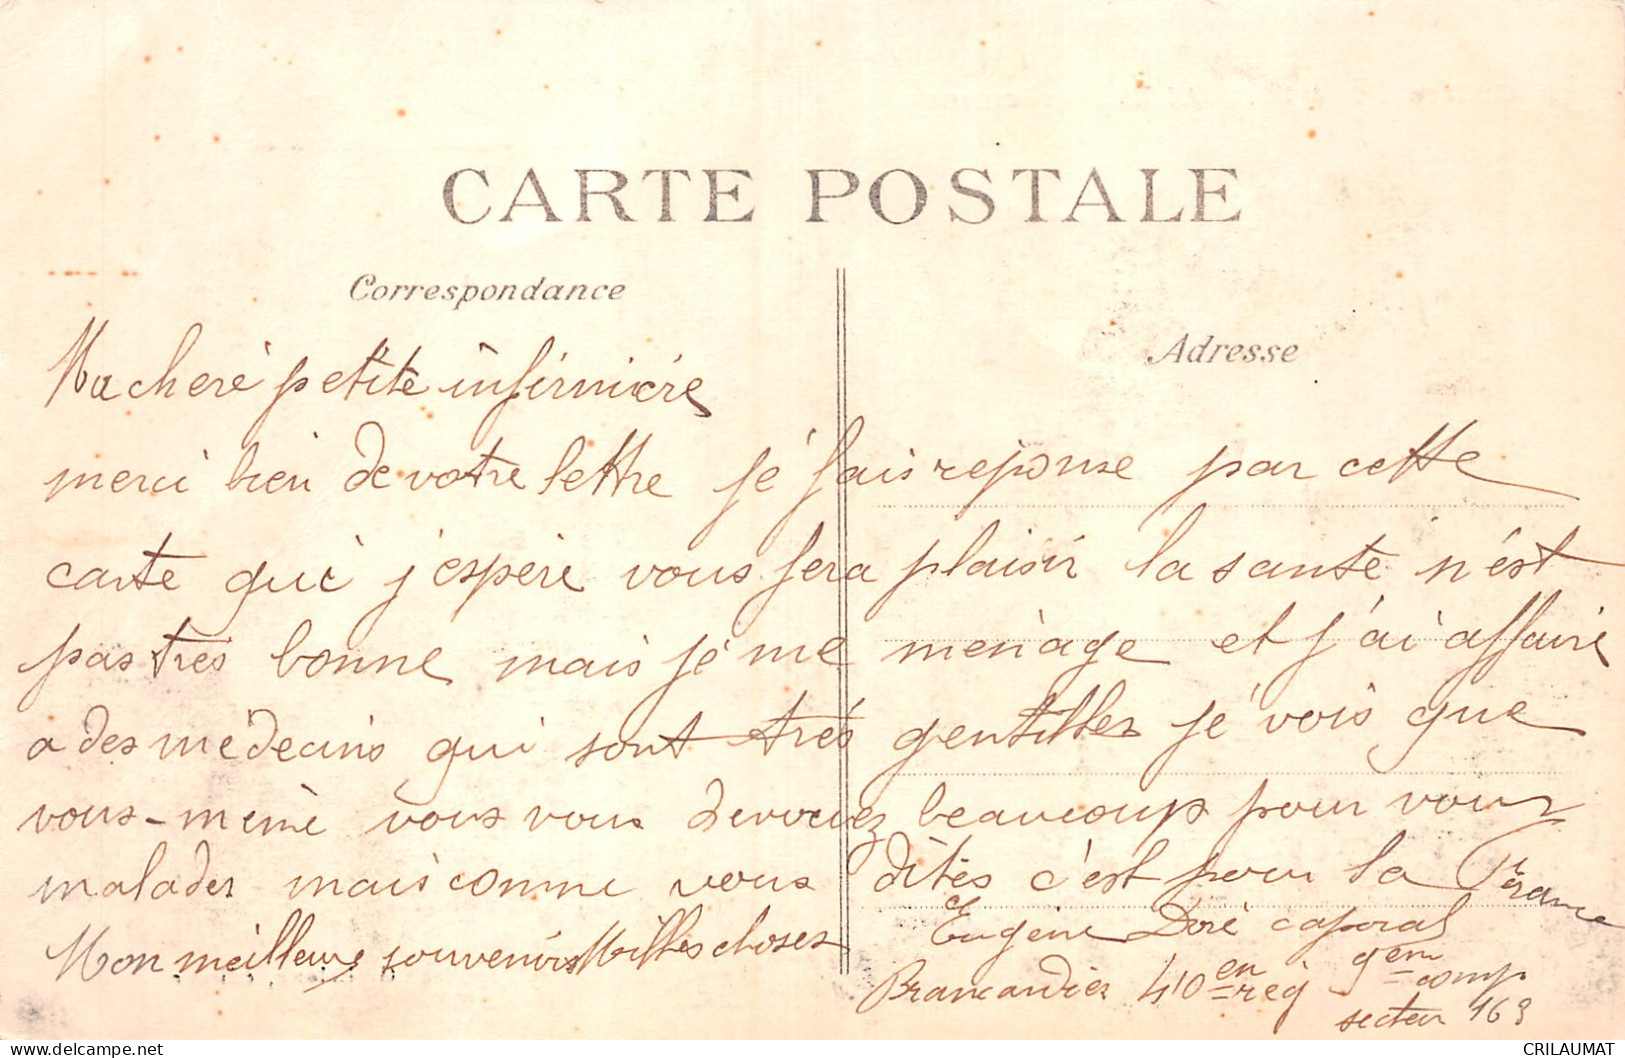 CARTE POSTALE
Correspondance
Adresse
Ma cheré petite infirmiére
merci bien de votre lettre je fais reponse par cette
carte qui j'espère vous fera plaisir la santé n'est
pas tres bonne mais je me menage et j'ai affaire
a des médecins qui sont trés gentilles je vois que
vous-même vous vous devouez beaucoup pour vous
malades mais comme vous dites c'est pour la France
Mon meilleure souvenirs Milles choses
Eugène Doré caporal
Brancardier 410 en reg 9em comp
secteur 169
CRILAUMAT